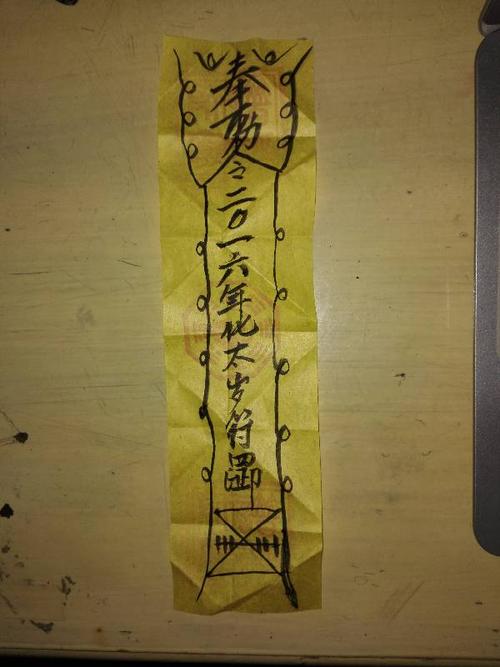 奉勅令二〇一六年化太岁符罡